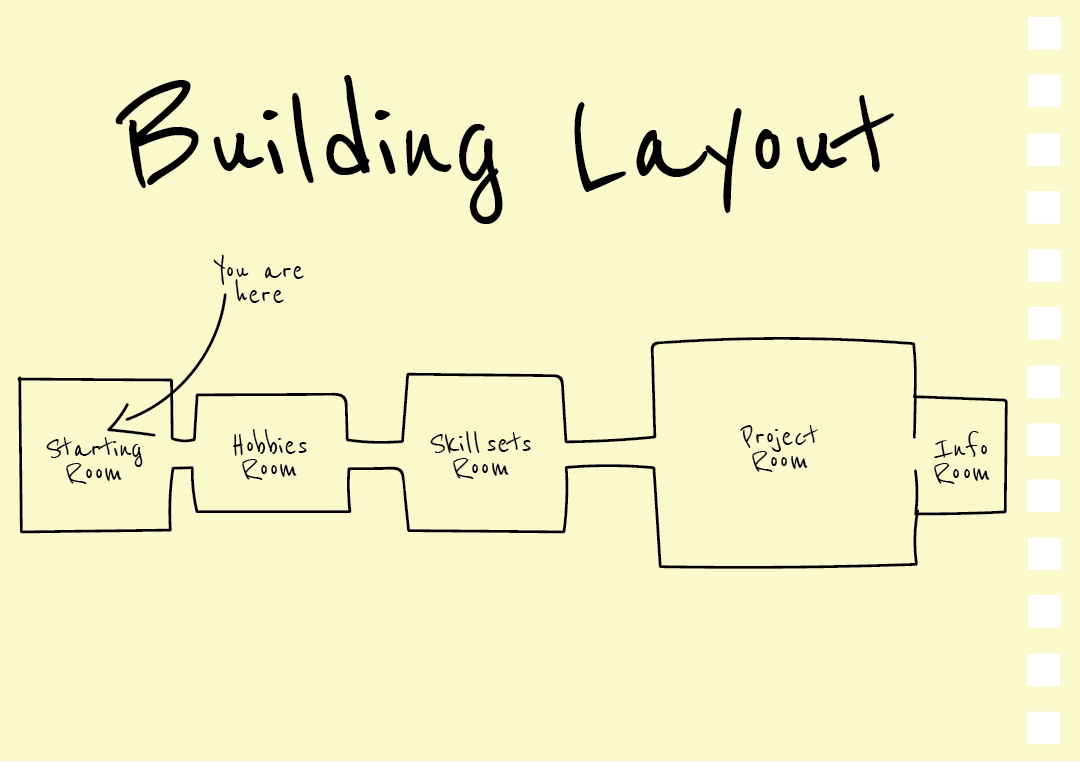 Building Layout
You are
here
Starting
Room
Hobbies
Room
Skill sets
Room
Project
Room
Info
Room